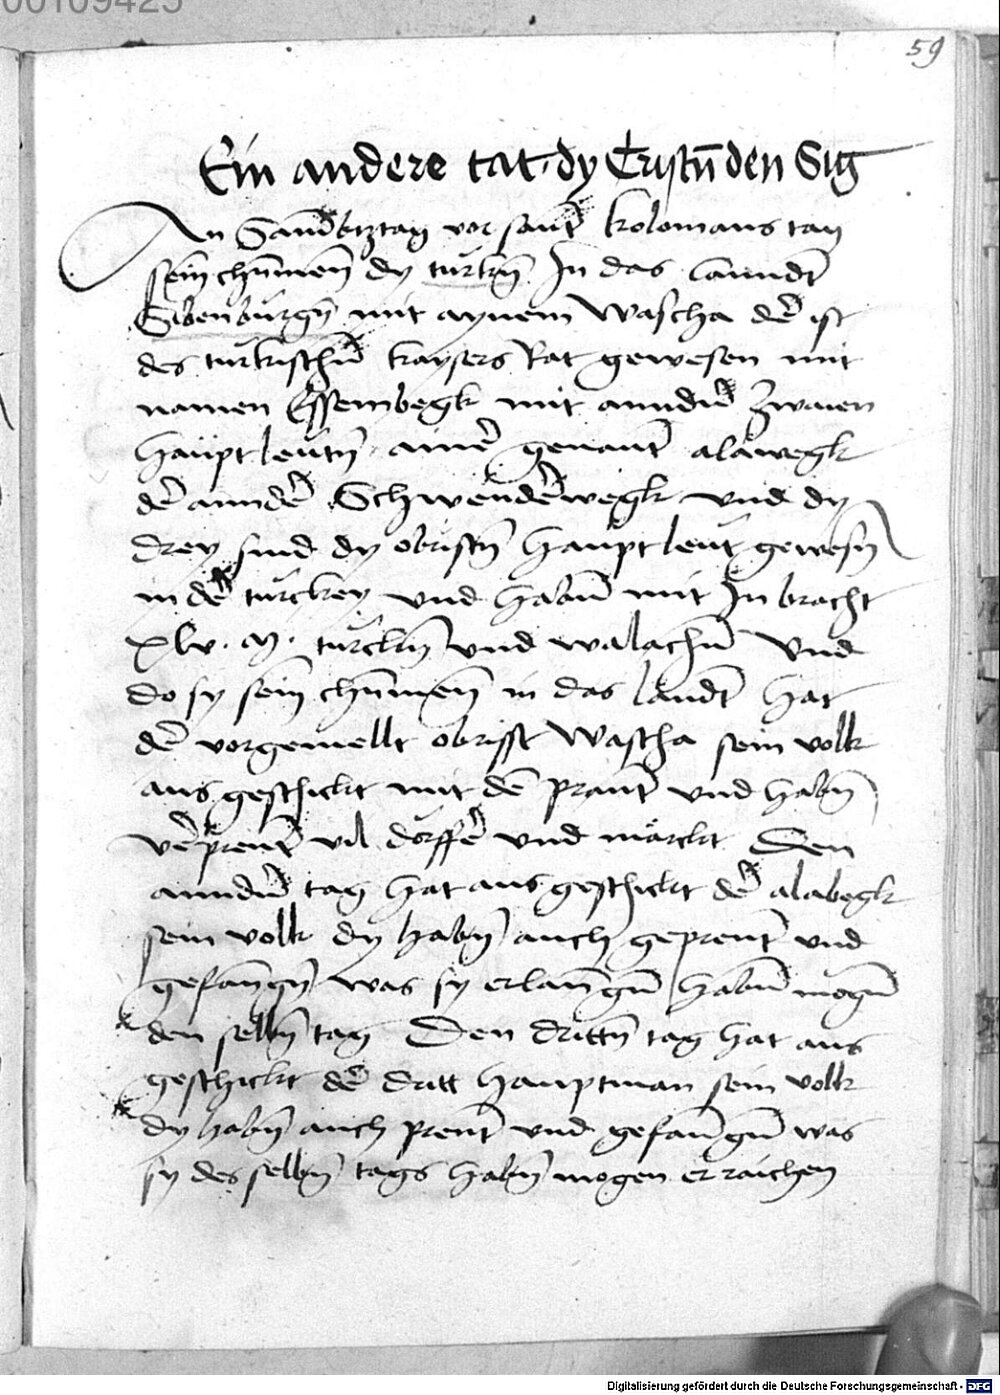 00109425
59
Ein andere tat dy Cristn̄ den Sig
An Sambtztag vor sant kolomans tag
sein chūmen dy turkn̄ In das lanndt
Sibenburgn̄ mit aynem Wascha de͂ ist
des turkischn̄ kaysers Rat gewesen mit
namen Essembegk mit anndn̄ Zwaien
haüptleutn̄ aine͂ genant alawegk
de͂ annde͂ Schwende͂wegk vnd dy
drey sind dy obristn̄ hauptleut gewesn̄
in de͂ turckey vnd habn̄ mit In bracht
xlv. M. turckn̄ vnd walachn̄ Vnd
do sy sein chūmen in das landt hat
de͂ vorgemellt obrisst Wascha sein volk
aus geschickt mit de͂ prant vnd habn̄
ve͂prent vil dorffe͂ vnd märckt Den
anndn̄ tag hat aus geschickt de͂ alabegk
sein volk dy habn̄ auch geprent vnd
gefangn̄ was sy erlangn̄ habn̄ mogn̄
den selbn̄ tag Den drittn̄ tag hat aus
geschickt de͂ dritt hauptman sein volk
dy habn̄ auch prent vnd gefangn̄ was
sy des selbn̄ tags habn̄ mogen erraichen
Digitalisierung gefördert durch die Deutsche Forschungsgemeinschaft - DFG